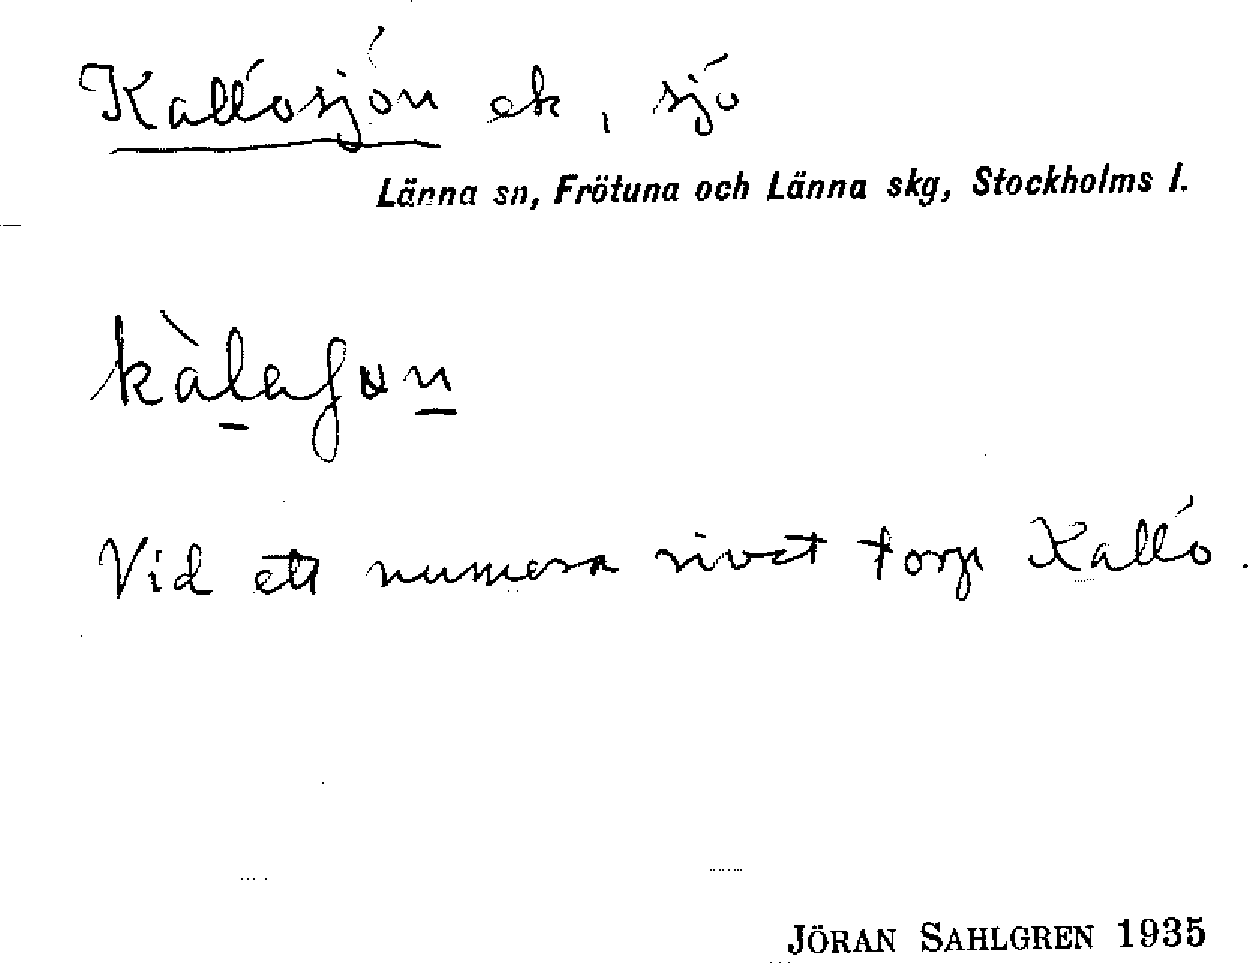 Kallösjön ek, sjö
Länna sn, Frötuna och Länna skg, Stockholms l.
Vid ett numera rivet torp Kallö.
JÖRAN SAHLGREN 1935